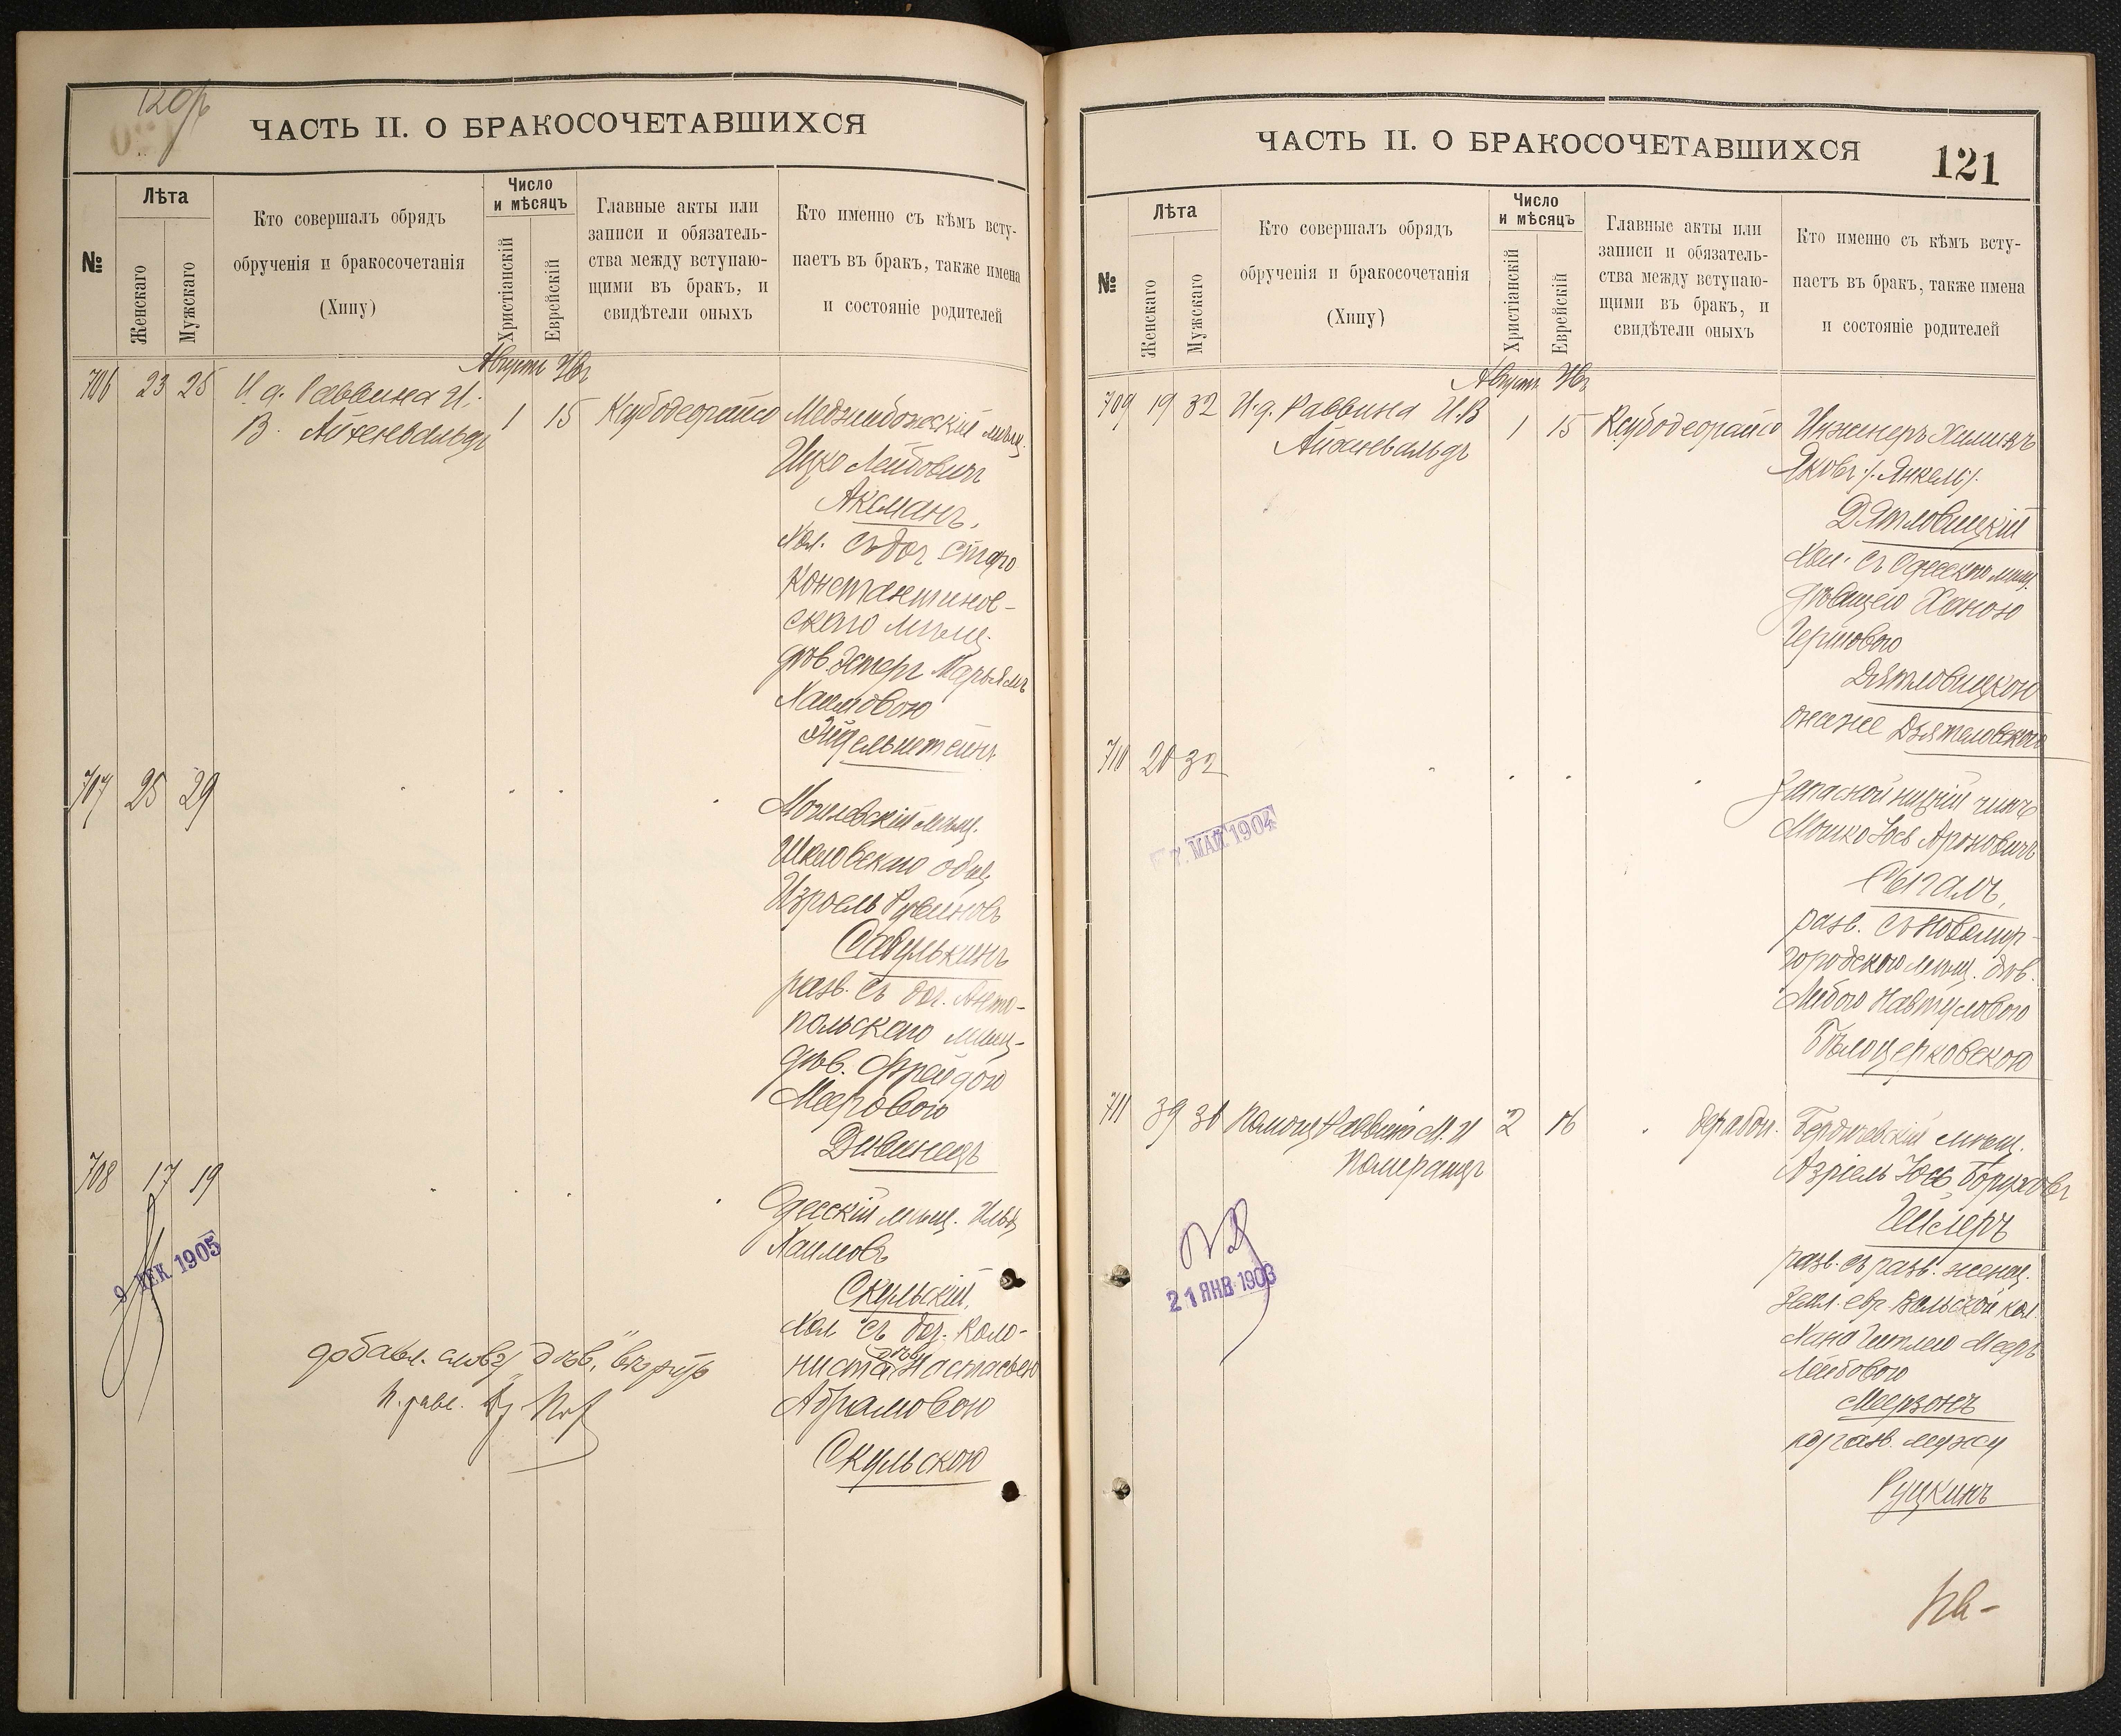 120
ЧАСТЬ II. О БРАКОСОЧЕТАВШИХСЯ
№
Лѣта
Женскаго
Мужскаго
Кто совершалъ обрядъ
обрученія и бракосочетанія
(Хипу)
Число
и мѣсяцъ
Христіанскій
Еврейскій
Главные акты или
записи и обязатель-
ства между вступаю-
щими въ бракъ, и
свидѣтели оныхъ
Кто именно съ кѣмъ всту-
паетъ въ бракъ, также имена
и состояніе родителей
Августъ
706 23 25 И. д. Раввина И.
В. Айхенвальдъ
1 15
Меджибожскій мѣщ.
Ицко Лейбовичъ
Аксманъ,
хол. съ доч. Старо
Константинов-
скаго мѣщ.
дѣв. Эстеръ Марьямъ
Хаимовою
Эйдельштейнъ
707 25 29
Могилевскій мѣщ.
Шкловскаго общ.
Изроель Рувиновъ
Савулькинъ
разв. съ доч. Анто-
польскаго мѣщ.
дѣв. Фрейдою
Мееровою
Дивинецъ
708 17 19
9 ДЕК 1905
Одесскій мѣщ.
Хаимовъ
Скульскій,
хол съ доч. Коло-
ниста дѣв. Настасьею
Абрамовою
Скульскою
добавл. слово „дѣв.“ вѣрно
П. равв.
ЧАСТЬ II. О БРАКОСОЧЕТАВШИХСЯ
121
№
Лѣта
Женскаго
Мужскаго
Кто совершалъ обрядъ
обрученія и бракосочетанія
(Хипу)
Число
и мѣсяцъ
Христіанскій
Еврейскій
Главные акты или
записи и обязатель-
ства между вступаю-
щими въ бракъ, и
свидѣтели оныхъ
Кто именно съ кѣмъ всту-
паетъ въ бракъ, также имена
и состояніе родителей
Августъ
709 19 32 И. д. Раввина И. В
Айхенвальдъ
1 15
Инженеръ Химикъ
Яковъ /. Янкель /.
Дятловицкій
хол. съ Одесскою мѣщ.
дѣвицею Ханою
Герцовою
Дятловицкою
онаже Дзятеловскою
710 20 32
7. МАЙ 1904
Запасной нижній чинъ
Мошко Іось Ароновичъ
Сыгалъ,
разв. съ Новомир-
городскою мѣщ. дѣв.
Либою Навтуловою
Бѣлоцерковскою
711 39 38 Помощ Раввина М. И
Померанцъ
2 16
Бердичевскій мѣщ.
Азріель Іось Боруховъ
Шлеръ
разв. съ разв. женщ.
Хана Гитлею Меер
Лейбовою
Меерзонъ
по разв. мужу
Рушкинъ
21 ЯНВ 1903